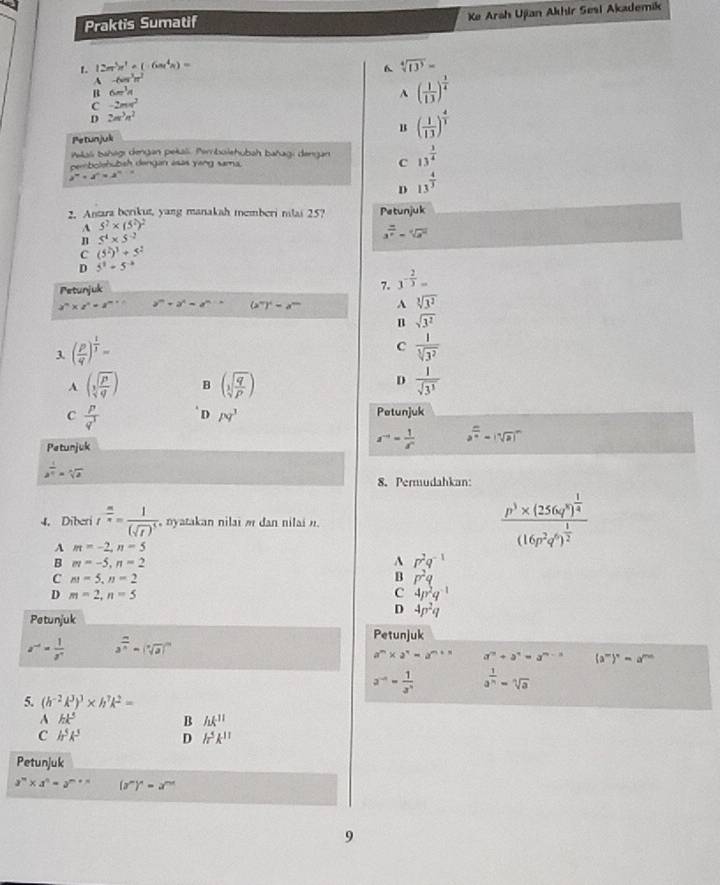 Praktis Sumatif
Ke Arah Ujian Akhir Sesi Akademik
1. 12m³n³ ÷ (-6m⁴n) =
A -6m³n²
B 6m³n
C -2mn²
D 2m³n²
Petunjuk
Pekali bahagi dengan pekali. Pembolehubah bahagi dengan
pembolehubah dengan asas yang sama.
aᵐ ÷ aⁿ = aᵐ ⁻ ⁿ
2. Antara berikut, yang manakah memberi nilai 25?
A 5² × (5²)²
B 5⁴ × 5⁻²
C (5²)³ ÷ 5²
D 5³ ÷ 5⁻⁶
Petunjuk
aᵐ × aⁿ = aᵐ ⁺ ⁿ aᵐ ÷ aⁿ = aᵐ ⁻ ⁿ (aᵐ)ⁿ = aᵐⁿ
3. (p/q)^(1/3) =
A (∛(p/q)) B (∛(q/p))
C p/q³ D pq³
Petunjuk
a^(1/n) = ⁿ√a
4. Diberi t^(-m/n) = 1/(√t)⁵, nyatakan nilai m dan nilai n.
A m = -2, n = 5
B m = -5, n = 2
C m = 5, n = 2
D m = 2, n = 5
Petunjuk
a⁻ⁿ = 1/aⁿ a^(m/n) = (ⁿ√a)ᵐ
5. (h⁻²k³)³ × h⁷k² =
A hk⁵ B hk¹¹
C h⁵k⁵ D h⁵k¹¹
Petunjuk
aᵐ × aⁿ = aᵐ ⁺ ⁿ (aᵐ)ⁿ = aᵐⁿ
6. ⁴√(13³) =
A (1/13)^(3/4)
B (1/13)^(4/3)
C 13^(3/4)
D 13^(4/3)
Petunjuk
a^(m/n) = ⁿ√(aᵐ)
7. 3^(-2/3) =
A ∛(3²)
B √(3²)
C 1/∛(3²)
D 1/√(3³)
Petunjuk
a⁻ⁿ = 1/aⁿ a^(m/n) = (ⁿ√a)ᵐ
8. Permudahkan:
(p³ × (256q⁸)^(1/4)) / (16p²q⁶)^(1/2)
A p²q⁻¹
B p²q
C 4p²q⁻¹
D 4p²q
Petunjuk
aᵐ × aⁿ = aᵐ ⁺ ⁿ aᵐ ÷ aⁿ = aᵐ ⁻ ⁿ (aᵐ)ⁿ = aᵐⁿ
a⁻ⁿ = 1/aⁿ a^(1/n) = ⁿ√a
9